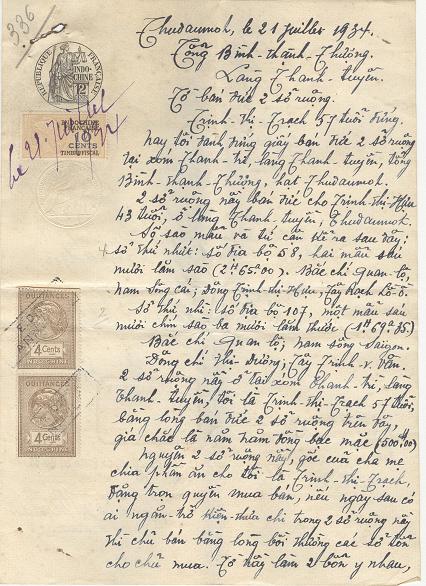 336
RÉPUBLIQUE FRANÇAISE
INDO-CHINE
12
INDOCHINE FRANÇAISE
CENTS
TIMBRE FISCAL
le 21 Juillet 1934
QUITTANCES
4 Cents
INDO-CHINE
QUITTANCES
4 Cents
INDO-CHINE
Thudaumot, le 21 Juillet 1934.
Tổng Bình-thành Thượng.
Làng Thanh-tuyền.
Tờ bán đứt 2 sở ruộng.
Trịnh-thị-Trạch 57 tuổi đứng.
Nay tôi đành đứng giấy bán đứt 2 sở ruộng
tại xóm Thanh-trì, làng Thanh-tuyền, tổng
Bình-thành-Thượng, hạt Thudaumot.
2 sở ruộng này bán đứt cho Trịnh-thị-Hữu
43 tuổi, ở làng Thanh-tuyền, Thudaumot.
Số sào mẫu và tứ cận kể ra sau đây;
số thứ nhứt: số địa bộ 58, hai mẫu sáu
mươi lăm sào (2H65a00). Bắc chỉ Quan-lộ,
Nam Sông cái; Đông Trịnh-thị-Hữu, Tây Rạch
Số thứ nhì: số địa bộ 107, một mẫu sáu
mươi chín sào ba mươi lăm thước (1H69a35)
Bắc chỉ Quan lộ; nam sông Saigon.
Đông chỉ Thị-Dương, Tây Trịnh-v-Vân.
2 sở ruộng này ở tại xóm Thanh-trì, làng
Thanh-tuyền, tôi là Trịnh-thị-Trạch 57 tuổi,
bằng lòng bán đứt 2 sở ruộng trên đây,
giá chắc là năm trăm đồng bạc mặt (500$00)
Nguyên 2 sở ruộng này, gốc của cha mẹ
chia phần ăn cho tôi là Trịnh-thị-Trạch,
Đặng trọn quyền mua bán, nếu ngày sau có
ai ngăn-trở kiện-thưa chi trong 2 sở ruộng này
thì chủ bán bằng lòng bồi thường các số tổn
cho chủ mua. Tờ này làm 2 bổn y nhau,